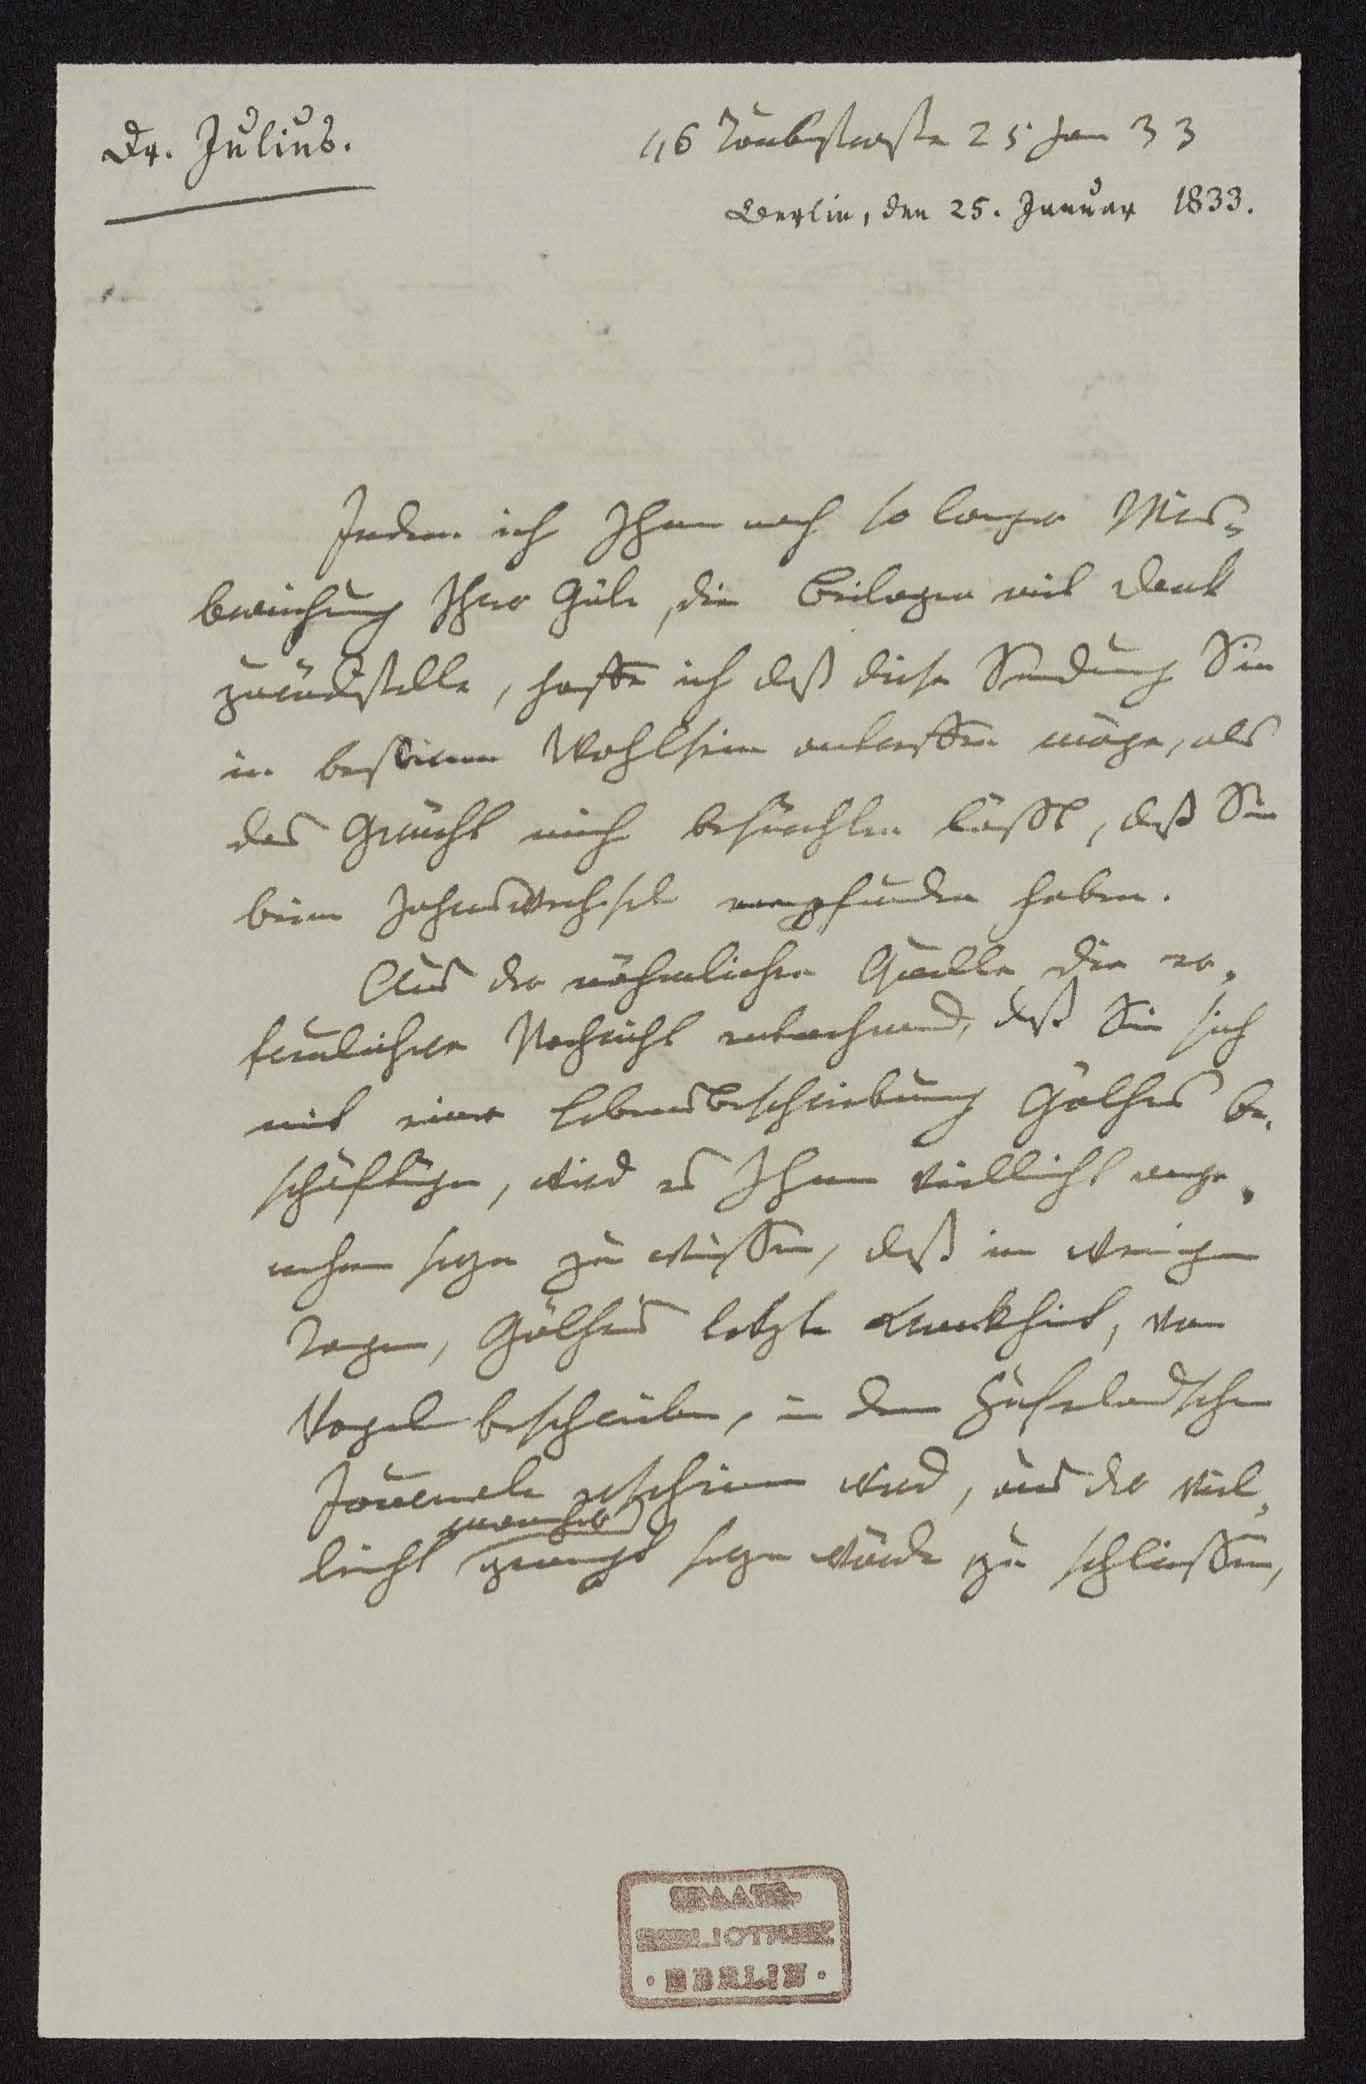 Dr. Julius.
46 Taubenstraße 25 Jan 33
Berlin, den 25. Januar 1833.
Indem ich Ihnen nach so langer Mis-
brauchung Ihrer Güte, die Beilagen mit Dank
zurückstelle, hoffe ich daß diese Sendung Sie
in besserem Wohlsein antreffen möge, als
das Gerücht mich befürchten läßt, daß Sie
beim Jahreswechsel empfunden haben.
Aus der nähmlichen Quelle die er-
freulichere Nachricht entnehmend, daß Sie sich
mit einer Lebensbeschreibung Göthes be-
schäftigen, wird es Ihnen vielleicht ange-
nehm seyn zu wissen, daß in wenigen
Tagen, Göthes letzte Krankheit, von
Vogel beschrieben, in dem Hufelandschen
Journale erscheinen wird, aus der viel-
mancher
leicht geneigt seyn würde zu schliessen,
STAATS-
BIBLIOTHEK
• BERLIN •